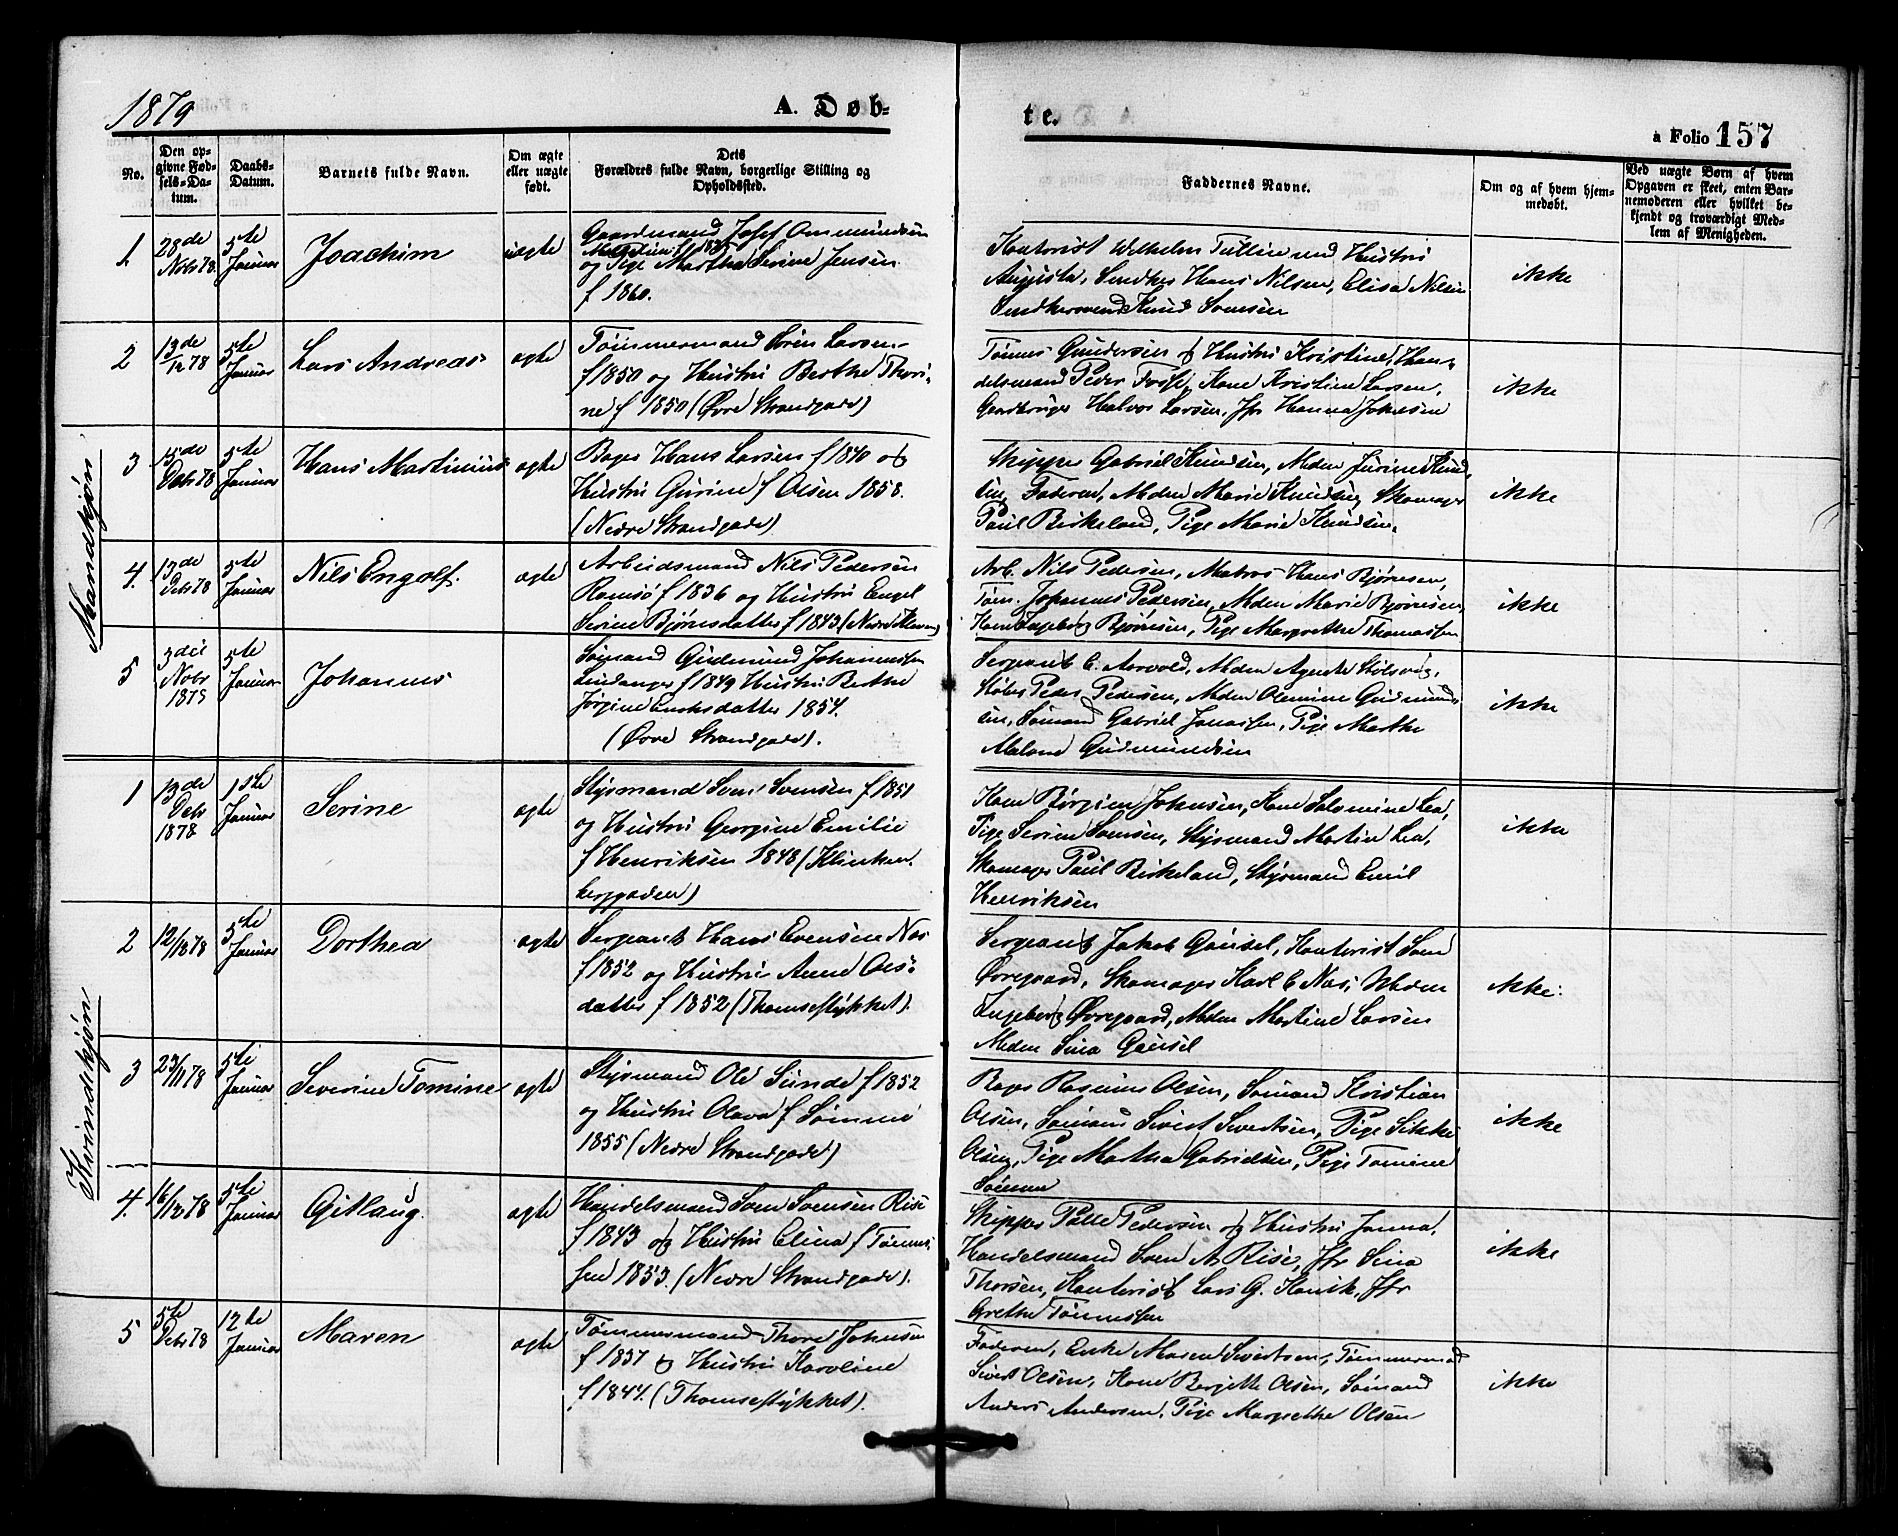 1879
A. Døb-
te.
a Folio 157
No.
Den op-
givne Fød-
sels-Da-
tum.
Daabs-
Datum.
Barnets fulde Navn.
Om ægte
eller uægte
født.
Dets
Forældres fulde Navn, borgerlige Stilling og
Opholdssted.
Faddernes Navne.
Om og af hvem hjem-
medøbt.
Ved uægte Børn af hvem
Opgaven er skeet, enten Bar-
nemoderen eller hvilket be-
kjendt og troværdigt Med-
lem af Menigheden.
Mandkjøn
1.
28de
Nobr 78.
5te
Januar
Joachim
uægte
Gaardmand Josef Ommundsen
og Pige Martha Serine Jensen
f 1860.
Kontorist Wilhelm Tullin und Hustru
Augusta, Snedker Hans Nilsen, Elisa Nilsen
Snedkersvend Knud Svensen
ikke
2
13de
/12 78
5te
Januar
Lars Andreas
ægte
Tømmermand Sören Larsen
f 1850 og Hustru Berthe Thori-
ne f 1850 (Øvre Strandgade)
Tönnes Gundersen og Hustru Kristine, Han-
delsmand Peder Kone Kristine Larsen,
Gaardbruger Halvor Larsen, Jfr Hanna Johnsen
ikke
3
15de
Debr 78
5te
Januar
Hans Martinius
ægte
Bager Hans Larsen f 1840 og
Hustru Gurine f Olsen 1858.
(Nedre Strandgade)
Skipper Gabriel Knudsen, Mdm Jurine Knud-
sen, Faderen, Mdm Marie Knudsen, Skomager
Paul Birkeland, Pige Marie Knudsen.
ikke
4.
13de
Debr 78
5te
Januar
Nils Engolf.
ægte
Arbeidsmand Nils Pedersen
Ramsö f 1836 og Hustru Engel
Serine Bjørnsdatter f 1843. (Nedre Kleven)
Arb. Nils Pedersen, Matros Hans Bjørnsen,
Töm. Johannes Pedersen, Mdm Marie Bjørnsen,
Kone Ingeborg Bjørnsen, Pige Margrethe Thomassen
ikke
5
3die
Nobr
1878
5te
Januar
Johannes
Sömand Gudmund Johannessen
f 1849 Hustru Berthe
Jørgine Enoksdatter 1854.
(Øvre Strandgade).
Sergeant C. Aarvold, Mdm Agnete
Støber Peder Pedersen, Mdm Olemine Gudmund-
sen, Sömand Gabriel Jonassen, Pige Marthe
Malene Gudmundsen
ikke
Kvindekjøn
1
13de
Debr
1878
1ste
Januar
Serine
ægte
Styrmand Sven Svensen f 1851
og Hustru Georgine Emilie
f Henriksen 1848 (Klinken-
berggaden)
Kone Børgine Johnsen, Kone Salomine Lea,
Pige Serine Svensen, Styrmand Martin Lea,
Skomager Paul Birkeland, Styrmand Emil
Henriksen
ikke
2
12/12 78
5te
Januar
Dorthea
ægte
Sergeant Hans Evensen Næs
f 1852 og Hustru Anne Ols-
datter f 1852 (Thomsestykket).
Sergeant Jakob Gausel, Kontorist Sven
Øvregaard, Skomager Karl C Næs, Mdm
Ingeborg Øvregaard, Mdm Martine Larsen
Mdm Sina Gausel
ikke.
3
23/11 78
5te
Januar
Severine Tomine
ægte
Styrmand Ole Sunde f 1852
og Hustru Olava f Sömme
1855 (Nedre Strandgade)
Bager Rasmus Olsen, Sömand Kristian
Olsen, Sömand Sivert Sivertsen, Pige Sikke
Olsen, Pige Martha Gabrielsen, Pige Tomine
Sömme
ikke
4.
16/12 78
5te
Januar
Gitlaug.
ægte
Handelsmand Sven Svensen Rise
f 1843 og Hustru Elina f Tönnes-
sen 1853. (Nedre Strandgade).
Skipper Palle Pedersen og Hustru Janna,
Handelsmand Sven A Rise, Jfr Sina
Thorsen, Kontorist Lars G. Hauik, Jfr
Grethe Tönnessen
ikke
5
5te
Debr 78
12te
Januar
Maren
ægte
Tømmermand Thore Johnsen
f 1837 og Hustru Karoline
f 1844. (Thomsestykket).
Faderen, Enke Maren Sivertsen, Tömmermand
Sivert Olsen, Kone Bergitte Olsen, Sömand
Anders Andersen, Pige Margrethe Olsen
ikke